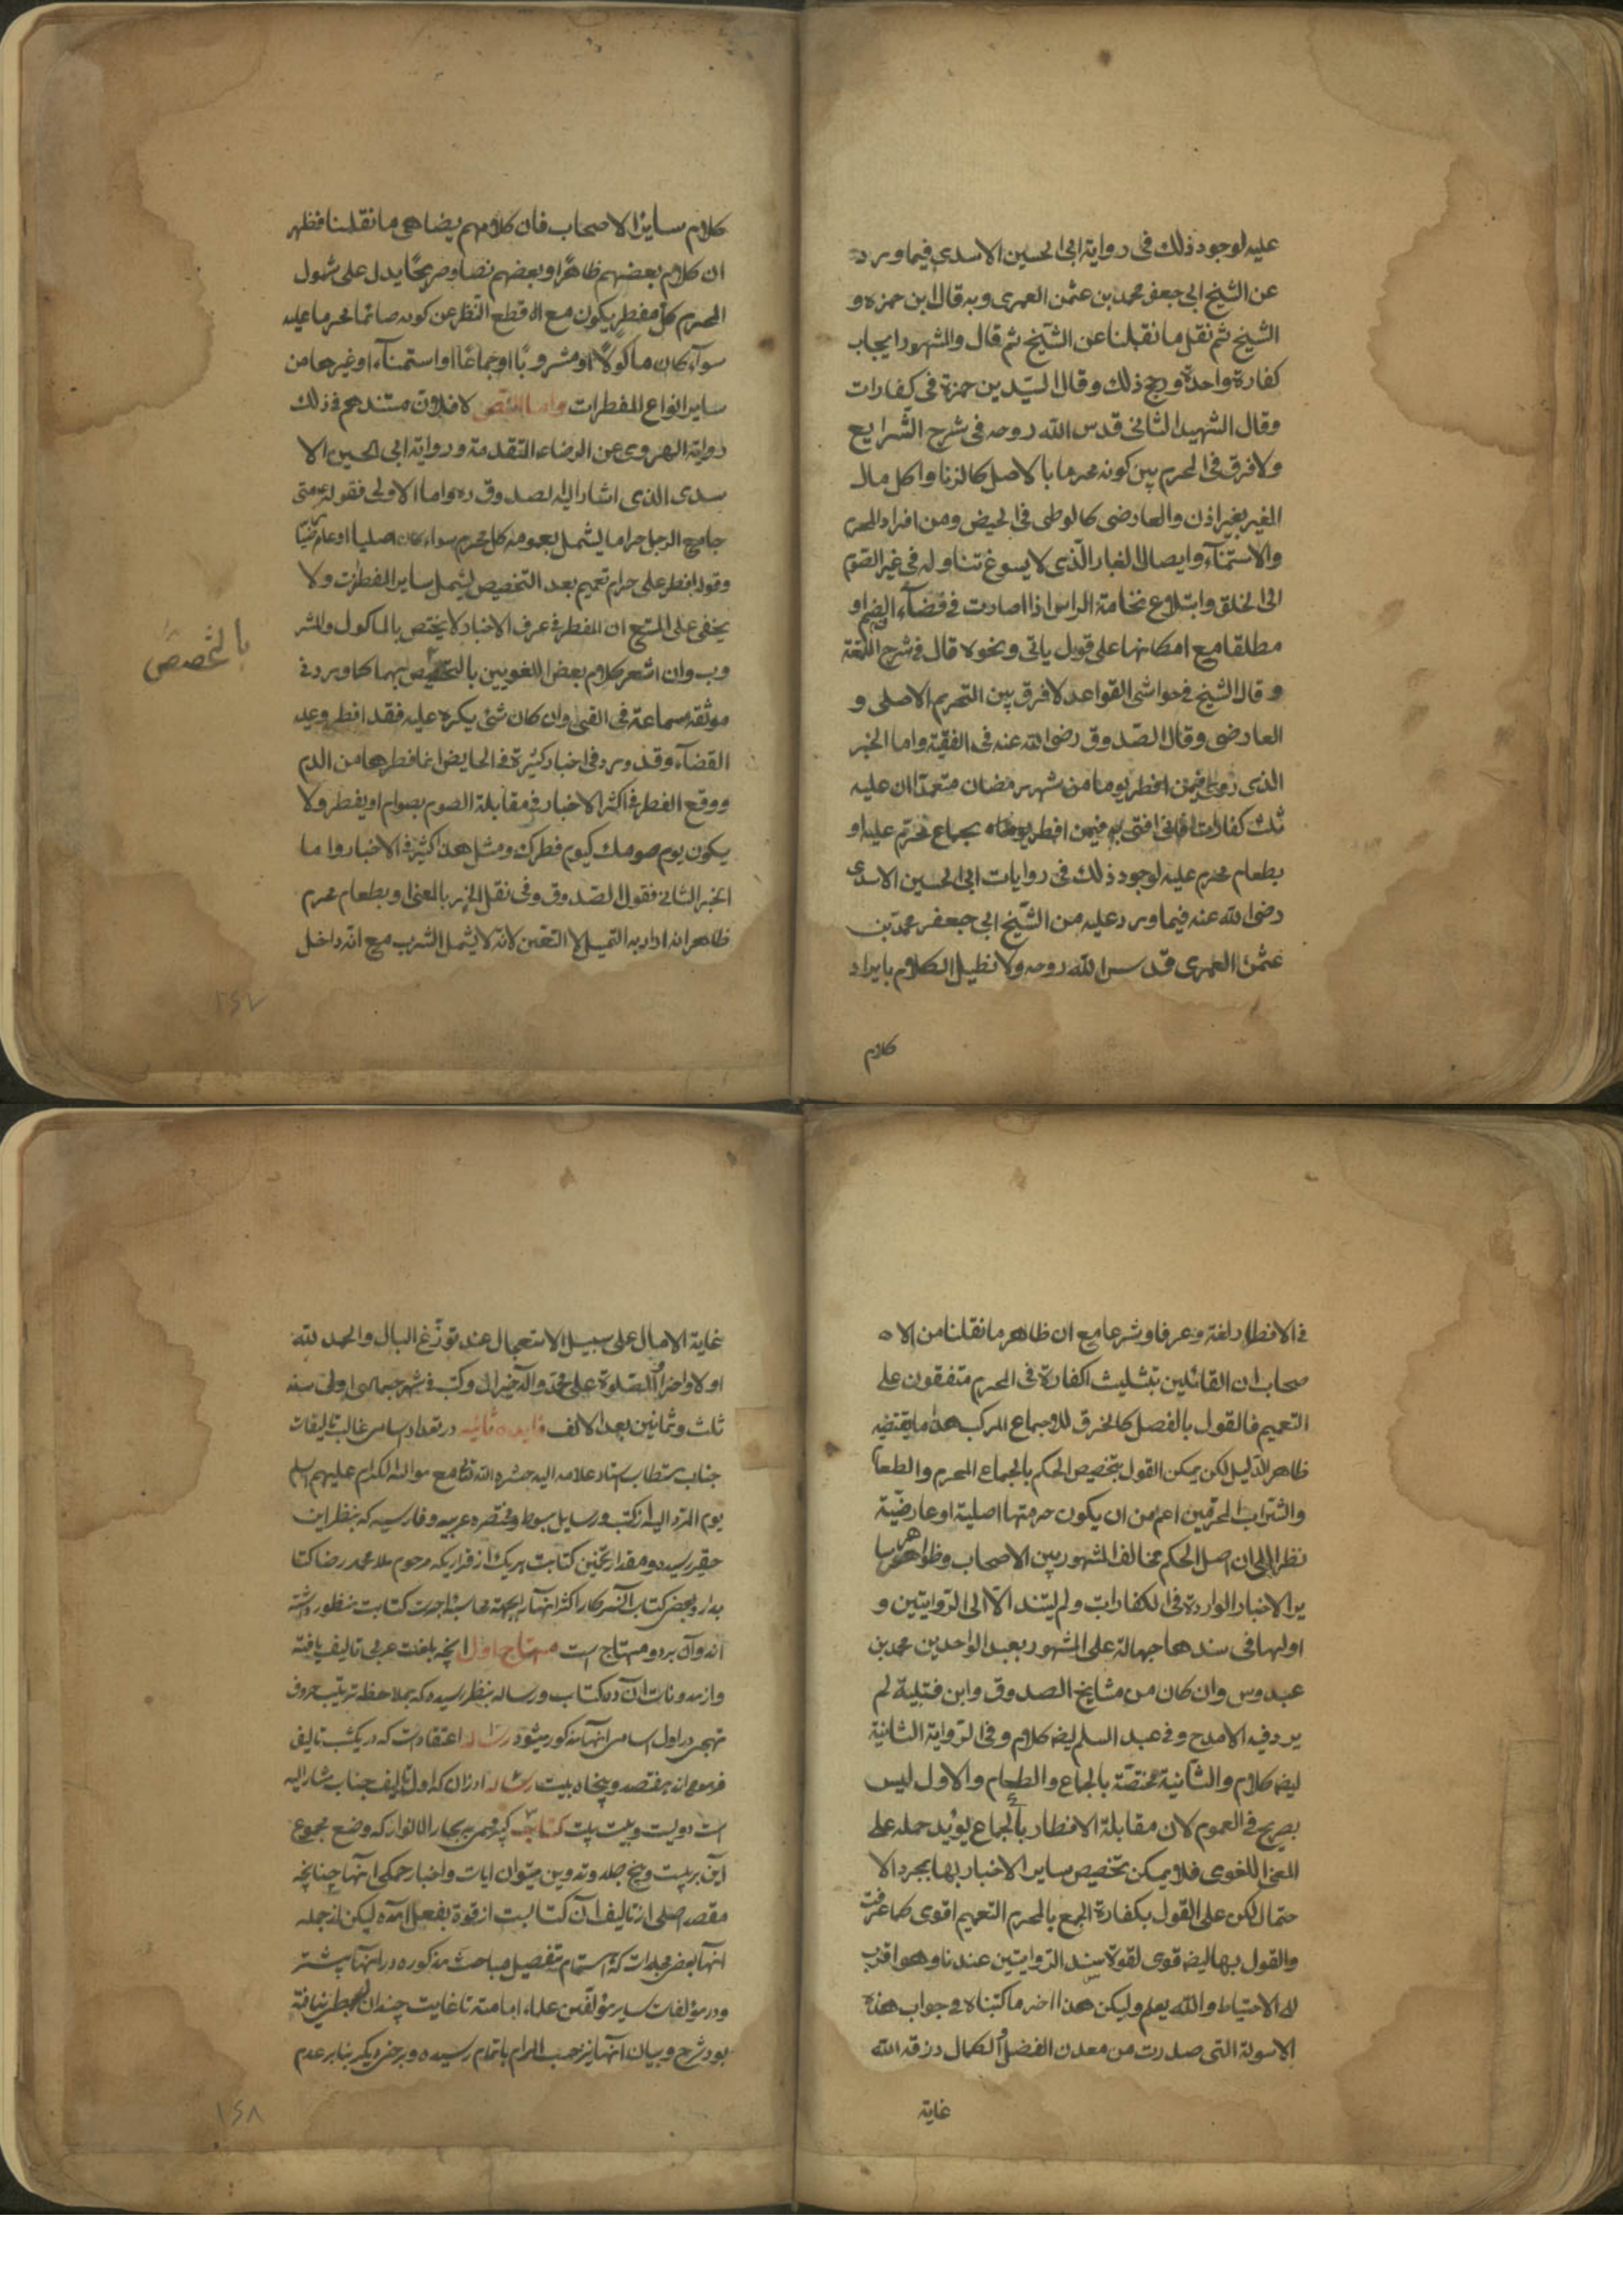 عليه لوجود ذلك فى رواية ابى الحسين الاسدى فيما ورد
عن الشيخ ابى جعفر محمد بن عثمن العمرى وبه قال ابن حمزه و
الشيخ ثم نقل ما نقلنا عن الشيخ ثم قال والمشهور ايجاب
كفارة واحدة ورجح ذلك وقال السيد بن حمزة فى كفارات
وقال الشهيد الثانى قدس الله روحه فى شرح الشرايع
ولا فرق فى المحرم بين كونه محرما بالاصل كالزنا واكل مال
الغير بغير اذن والعارضى كالوطى فى الحيض ومن افراد المحرم
والاستمناء وايصال الغبار الذى لا يسوغ تناوله فى غير الصوم
الى الحلق وابتلاع نخامة الراس اذا صارت فى فضاء الفم او
مطلقا مع امكانها على قول ياتى ونحوه قال فى شرح اللمعة
وقال الشيخ فى حواشى القواعد لا فرق بين التحريم الاصلى و
العارضى وقال الصدوق رضى الله عنه فى الفقيه واما الخبر
الذى روى فيمن افطر يوما من شهر رمضان متعمدا ان عليه
ثلث كفارات فانى افتى به فيمن افطر بجماع محرم عليه او
بطعام محرم عليه لوجود ذلك فى روايات ابى الحسين الاسدى
رضى الله عنه فيما ورد عليه من الشيخ ابى جعفر محمد بن
عثمن العمرى قدس الله روحه ولا نطيل الكلام بايراد
كلام
كلام ساير الاصحاب فان كلامهم يضاهى ما نقلنا فظهر
ان كلام بعضهم ظاهرا وبعضهم نصا وصريحا يدل على شمول
المحرم كل مفطر يكون مع قطع النظر عن كونه صائما محرما عليه
سواء كان ماكولا او مشروبا او جماعا او استمناء او غيرها من
ساير انواع المفطرات واما النص فلان مستندهم فى ذلك
رواية الهروى عن الرضاء المتقدمة ورواية ابى الحسين الا
سدى الذى اشار اليه الصدوق ره واما الاولى فقوله ع متى
جامع الرجل حراما يشمل بعمومه كل محرم سواء كان اصليا او عارضيا
وقوله افطر على حرام تعميم بعد التخصيص ليشمل ساير المفطرت ولا
يخفى على المتتبع ان المفطر فى عرف الاخبار لا يختص بالماكول والمشر
وب وان اشعر كلام بعض اللغويين بالتخصيص بهما كما ورد فى
بالتخصص
موثقه سماعة فى القى وان كان شئ يكره عليه فقد افطر وعليه
القضاء وقد ورد فى اخبار كثيرة فى الحايض انما فطرها من الدم
ووقع الفطر فى اكثر الاخبار فى مقابلة الصوم يصوام او يفطر ولا
يكون يوم صومك كيوم فطرك ومثل هذا كثير فى الاخبار واما
الخبر الثانى فقول الصدوق وفى نقل الخبر بالمعنى او بطعام محرم
ظاهر انه اراد به التمثيل لا التعين لانه لا يشمل الشرب مع انه داخل
١٤٧
فى الافطار لغة وعرفا وشرعا مع ان ظاهر ما نقلنا من الا
صحاب ان القائلين بتثليث الكفارة فى المحرم متفقون على
التعميم فالقول بالفصل كالخرق للاجماع المركب هذا ما يقتضيه
ظاهر الدليل لكن يمكن القول بتخصيص الحكم بالجماع المحرم والطعام
والشراب المحرمين اعم من ان يكون حرمتها اصلية او عارضية
نظرا الى ان اصل الحكم مخالف المشهور بين الاصحاب وظواهر سا
ير الاخبار الواردة فى الكفارات ولم يستند الا الى الروايتين و
اولها فى سندها جهالة على المشهور بعبد الواحد بن محمد بن
عبدوس وان كان من مشايخ الصدوق وابن قتيبة لم
يرد فيه الا مدح وفى عبد السلم ايضا كلام وفى الرواية الثانية
ايضا كلام والثانية مختصة بالجماع والطعام والاول ليس
بصريح فى العموم لان مقابلة الافطار بالجماع يؤيد حمله على
المعنى اللغوى فلا يمكن تخصيص ساير الاخبار بها بمجرد الا
حتمال لكن على القول بكفارة الجمع بالمحرم التعميم اقوى كما عرفت
والقول بها ايضا قوى لقوة سند الروايتين عندنا وهو اقرب
الى الاحتياط والله يعلم وليكن هذا اخر ما كتبناه فى جواب هذه
الاسولة التى صدرت من معدن الفضل والكمال رزقه الله
غاية
غاية الامال على سبيل الاستعجال عند توزع البال والحمد لله
اولا واخرا والصلوة على محمد وآله خير آل وكتب فى شهر جمادى اولى سنه
ثلث وثمانين بعد الالف فايده ثانيه در تعداد اسامى غالب تاليفات
جناب مستطاب استاد علامه اليه حشره الله تعالى مع مواليه الكرام عليهم السلم
يوم از كتب ورسايل مبسوط ومختصره عربيه وفارسيه كه بنظر اين
حقير رسيده ومقدار تخمين كتابت هريك از قراريكه مرحوم ملا محمد رضا كتا
بدار وبعضى كتاب سركار اكثر انها را بجهة محاسبة اجرت كتابت منظور داشته
اند وآن بر دو منهاج است منهاج اول انچه بلغت عربى تاليف يافته
واز مدونات آن ده كتاب ورساله بنظر رسيده كه بملاحظه ترتيب حروف
تهجى در اول اسامى انها مذكور ميشود رساله اعتقادات كه در يكشب تاليف
فرموده اند هفتصد وپنجاه بيت رساله اوزان كه اول تاليف جناب مشار اليه
است دويست وبيست بيت كتاب كبير مسمى به بحار الانوار كه وضع مجموع
آن بر بيست وپنج جلد وتدوين متون ايات واخبار حمكى انها چنانچه
مقصد اصلى از تاليف آن كتابست از قوة بفعل آمده ليكن از جمله
انها بعضى مجلدات كه اهتمام بتفصيل مباحث مذكوره در انها بيشتر
ودر مؤلفات ساير مؤلفين علماء امامته تا غايت چندان بنظر نيافته
بود شرح وبيان انها نيز حسب المرام باتمام رسيده وبرخى ديكر بنا بر عدم
١٤٨